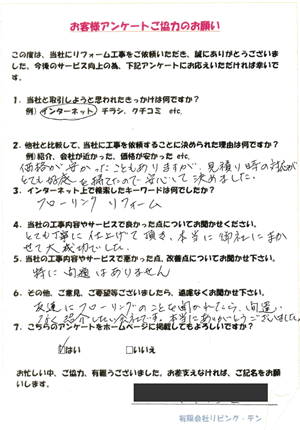 お客様アンケートご協力のお願い
この度は、当社にリフォーム工事をご依頼いただき、誠にありがとうございま
した。今後のサービス向上の為、下記アンケートにお応えいただければ幸いで
す。
1. 当社と取引しようと思われたきっかけは何ですか?
例) インターネット チラシ、クチコミ etc.
2. 他社と比較して、当社に工事を依頼することに決められた理由は何ですか?
例) 紹介、会社が近かった、価格が安かった etc.
価格が安かったこともありますが、見積り時の対応が
とても好感を持てたので安心して決めました.
3. インターネット上で検索したキーワードは何でしたか?
フローリング リフォーム
4. 当社の工事内容やサービスで良かった点についてお聞かせください。
とても丁寧に仕上げて頂き、本当に御社にまか
せて大成功でした.
5. 当社の工事内容やサービスで悪かった点、改善点についてお聞かせ下さい。
特に問題はありません
6. その他、ご意見、ご要望等ございましたら、遠慮なくお聞かせ下さい。
友達にフローリングのことを聞かれたら、間違い
なく紹介したい会社です。本当にありがとうございました。
7. こちらのアンケートをホームページに掲載してもよろしいですか?
はい □いいえ
お忙しい中、ご協力、有難うございました。お差支えなければ、ご記名をお願
いします。
有限会社リビング・テン